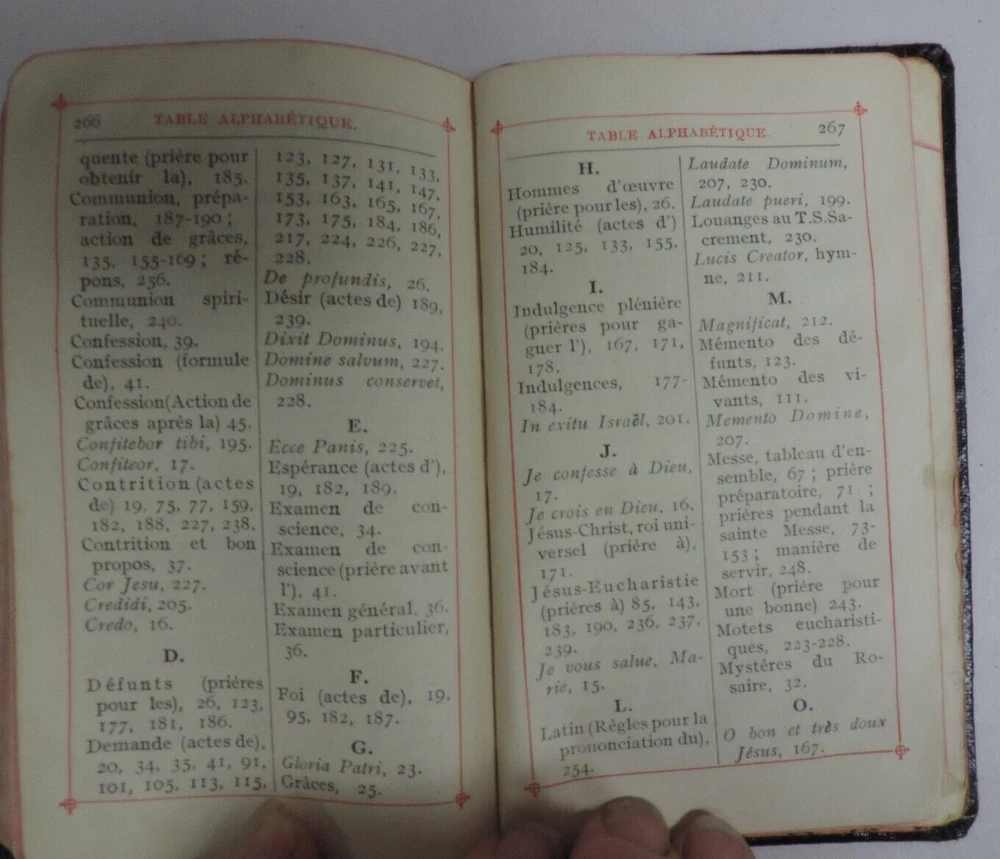 266 TABLE ALPHABÉTIQUE.
quente (prière pour
obtenir la), 185.
Communion, prépa-
ration, 187-190 ;
action de grâces,
135, 155-169 ; ré-
pons, 256.
Communion spiri-
tuelle, 240.
Confession, 39.
Confession (formule
de), 41.
Confession(Action de
grâces après la) 45.
Confitebor tibi, 195.
Confiteor, 17.
Contrition (actes
de) 19, 75, 77, 159,
182, 188, 227, 238.
Contrition et bon
propos, 37.
Cor Jesu, 227.
Credidi, 205.
Credo, 16.
D.
Défunts (prières
pour les), 26, 123,
177, 181, 186.
Demande (actes de),
20, 34, 35, 41, 91,
101, 105, 113, 115,
123, 127, 131, 133,
135, 137, 141, 147,
153, 163, 165, 167,
173, 175, 184, 186,
217, 224, 226, 227,
228.
De profundis, 26.
Désir (actes de) 189,
239.
Dixit Dominus, 194.
Domine salvum, 227.
Dominus conservet,
228.
E.
Ecce Panis, 225.
Espérance (actes d'),
19, 182, 189.
Examen de con-
science, 34.
Examen de con-
science (prière avant
l'), 41.
Examen général, 36.
Examen particulier,
36.
F.
Foi (actes de), 19,
95, 182, 187.
G.
Gloria Patri, 23.
Grâces, 25.
TABLE ALPHABÉTIQUE. 267
H.
Hommes d'œuvre
(prière pour les), 26.
Humilité (actes d')
20, 125, 133, 155,
184.
I.
Indulgence plénière
(prières pour ga-
gner l'), 167, 171,
178.
Indulgences, 177-
184.
In exitu Israël, 201.
J.
Je confesse à Dieu,
17.
Je crois en Dieu, 16.
Jésus-Christ, roi uni-
versel (prière à),
171.
Jésus-Eucharistie
(prières à) 85, 143,
183, 190, 236, 237,
239.
Je vous salue, Ma-
rie, 15.
L.
Latin (Règles pour la
prononciation du),
254.
Laudate Dominum,
207, 230.
Laudate pueri, 199.
Louanges au T.S.Sa-
crement, 230.
Lucis Creator, hym-
ne, 211.
M.
Magnificat, 212.
Mémento des dé-
funts, 123.
Mémento des vi-
vants, 111.
Memento Domine,
207.
Messe, tableau d'en-
semble, 67 ; prière
préparatoire, 71 ;
prières pendant la
sainte Messe, 73-
153 ; manière de
servir, 248.
Mort (prière pour
une bonne) 243.
Motets eucharisti-
ques, 223-228.
Mystères du Ro-
saire, 32.
O.
O bon et très doux
Jésus, 167.